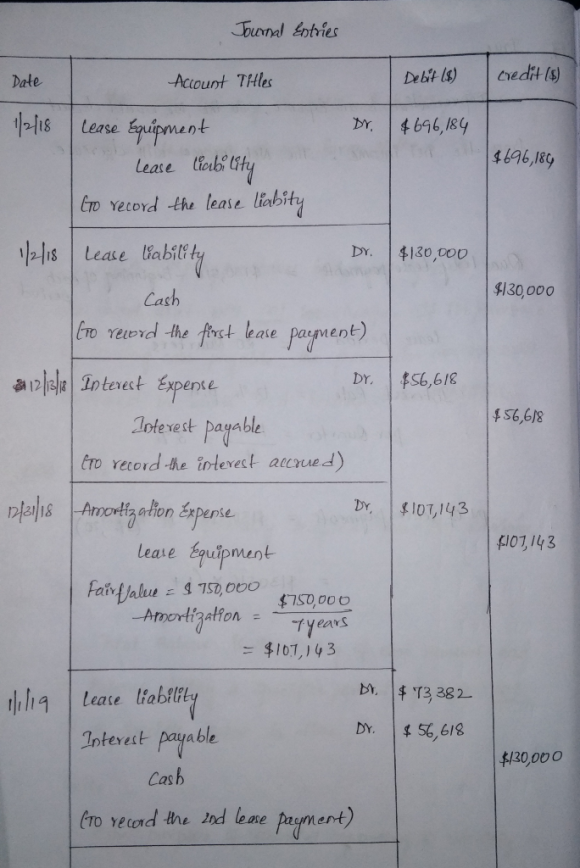 Journal Entries
Date Account Titles Debit ($) Credit ($)
1/2/18 Lease Equipment Dr. $696,184
Lease liability $696,184
(To record the lease liabity
1/2/18 Lease liability Dr. $130,000
Cash $130,000
(To record the first lease payment)
Interest Expense Dr. $56,618
Interest payable $56,618
(To record the interest accrued)
12/31/18 Amortization Expense Dr. $107,143
Lease Equipment $107,143
Fair Value = $750,000
Amortization = $750,000
7 years
= $107,143
1/1/19 Lease liability Dr. $73,382
Interest payable Dr. $56,618
Cash $130,000
(To record the 2nd lease payment)